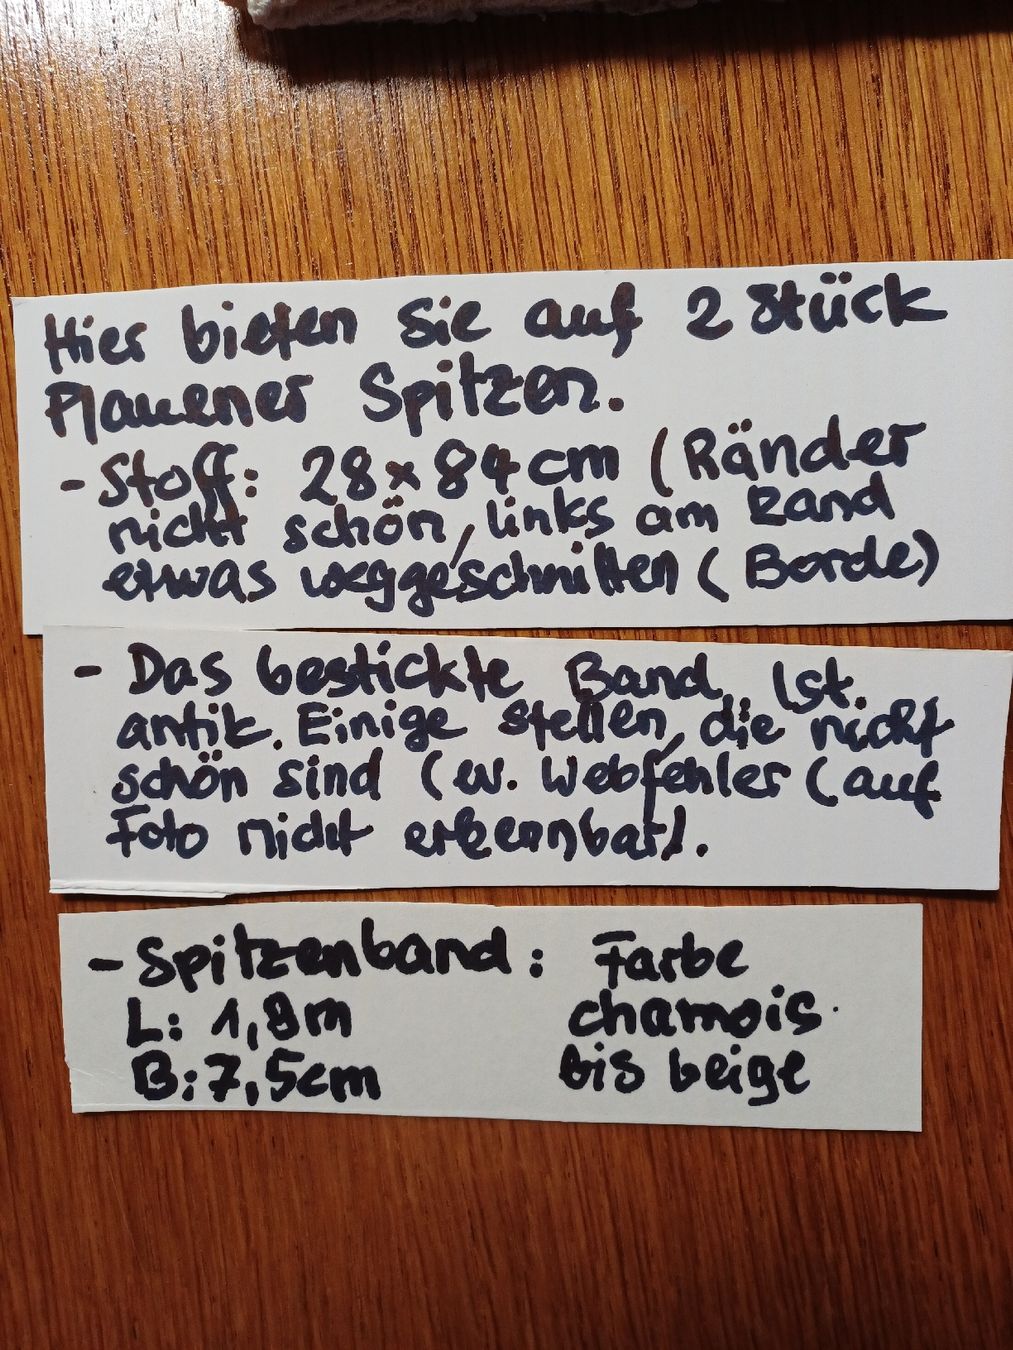 Hier bieten Sie auf 2 Stück
Plauener Spitzen.
- Stoff: 28 x 84 cm (Ränder
nicht schön, links am Rand
etwas weggeschnitten (Borde)
- Das bestickte Band, Ist.
antik. Einige Stellen, die nicht
schön sind (ev. Webfehler (auf
Foto nicht erkennbar).
- Spitzenband: Farbe
L: 1,8m chamois
B: 7,5cm bis beige